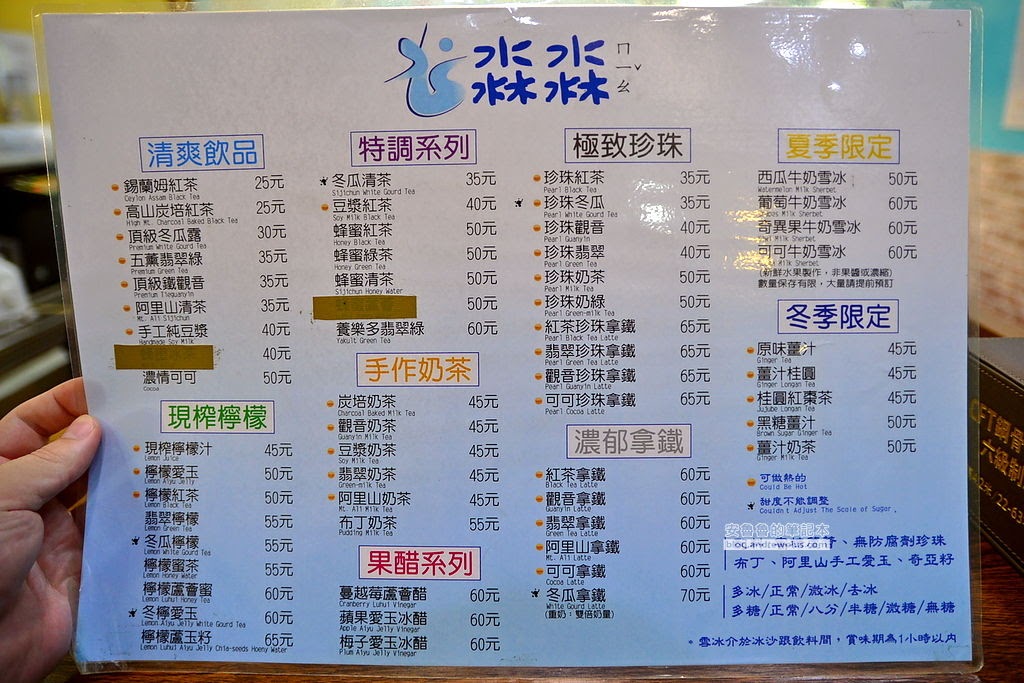 淼淼
ㄇㄧㄠˇ
清爽飲品
錫蘭姆紅茶 25元
Ceylon Assam Black Tea
高山炭培紅茶 25元
High Mt. Charcoal Baked Black Tea
頂級冬瓜露 30元
Premium White Gourd Tea
五薰翡翠綠 35元
Premium Green Tea
頂級鐵觀音 35元
Premium Tieguanyin
阿里山清茶 35元
Mt. Ali Sijichun
手工純豆漿 40元
Handmade Soy Milk
40元
濃情可可 50元
Cocoa
現榨檸檬
現榨檸檬汁 45元
Lemon Juice
檸檬愛玉 50元
Lemon Aiyu Jelly
檸檬紅茶 50元
Lemon Black Tea
翡翠檸檬 55元
Lemon Green Tea
冬瓜檸檬 55元
Lemon White Gourd Tea
檸檬蜜茶 55元
Lemon Honey Tea
檸檬蘆薈蜜 60元
Lemon Luhui Honey Tea
冬檸愛玉 60元
Lemon Aiyu Jelly White Gourd Tea
檸檬蘆玉籽 65元
Lemon Luhui Aiyu Jelly Chia-seeds Hoeny Water
特調系列
冬瓜清茶 35元
Sijichun White Gourd Tea
豆漿紅茶 40元
Soy Milk Black Tea
蜂蜜紅茶 50元
Honey Black Tea
蜂蜜綠茶 50元
Honey Green Tea
蜂蜜清茶 50元
Sijichun Honey Water
50元
養樂多翡翠綠 60元
Yakult Green Tea
手作奶茶
炭培奶茶 45元
Charcoal Baked Milk Tea
觀音奶茶 45元
Guanyin Milk Tea
豆漿奶茶 45元
Soy Milk Tea
翡翠奶茶 45元
Green-milk Tea
阿里山奶茶 45元
Mt. Ali Milk Tea
布丁奶茶 55元
Pudding Milk Tea
果醋系列
蔓越莓蘆薈醋 60元
Cranberry Luhui Vinegar
蘋果愛玉冰醋 60元
Apple Aiyu Jelly Vinegar
梅子愛玉冰醋 60元
Plum Aiyu Jelly Vinegar
極致珍珠
珍珠紅茶 35元
Pearl Black Tea
珍珠冬瓜 35元
Pearl White Gourd Tea
珍珠觀音 40元
Pearl Guanyin
珍珠翡翠 40元
Pearl Green Tea
珍珠奶茶 50元
Pearl Milk Tea
珍珠奶綠 50元
Pearl Green-milk Tea
紅茶珍珠拿鐵 65元
Pearl Black Tea Latte
翡翠珍珠拿鐵 65元
Pearl Green Tea Latte
觀音珍珠拿鐵 65元
Pearl Guanyin Latte
可可珍珠拿鐵 65元
Pearl Cocoa Latte
濃郁拿鐵
紅茶拿鐵 60元
Black Tea Latte
觀音拿鐵 60元
Guanyin Latte
翡翠拿鐵 60元
Green Tea Latte
阿里山拿鐵 60元
Mt. Ali Latte
可可拿鐵 60元
Cocoa Latte
冬瓜拿鐵 70元
White Gourd Latte
(重奶：雙倍奶量)
夏季限定
西瓜牛奶雪冰 50元
Watermelon Milk Sherbet
葡萄牛奶雪冰 60元
Milk Sherbet
奇異果牛奶雪冰 60元
Milk Sherbet
可可牛奶雪冰 60元
Milk Sherbet
(新鮮水果製作，非果醬或濃縮)
數量保存有限，大量請提前預訂
冬季限定
原味薑汁 45元
Ginger Tea
薑汁桂圓 45元
Ginger Longan Tea
桂圓紅棗茶 45元
Jujube Longan Tea
黑糖薑汁 50元
Brown Sugar Ginger Tea
薑汁奶茶 50元
Ginger Milk Tea
可做熱的
Could Be Hot
甜度不能調整
Couldn't Adjust The Scale of Sugar.
安魯魯的筆記本
blog.andrewplus.com
、無防腐劑珍珠
布丁、阿里山手工愛玉、奇亞籽
多冰/正常/微冰/去冰
多糖/正常/八分/半糖/微糖/無糖
* 雪冰介於冰沙跟飲料間，賞味期為1小時以內